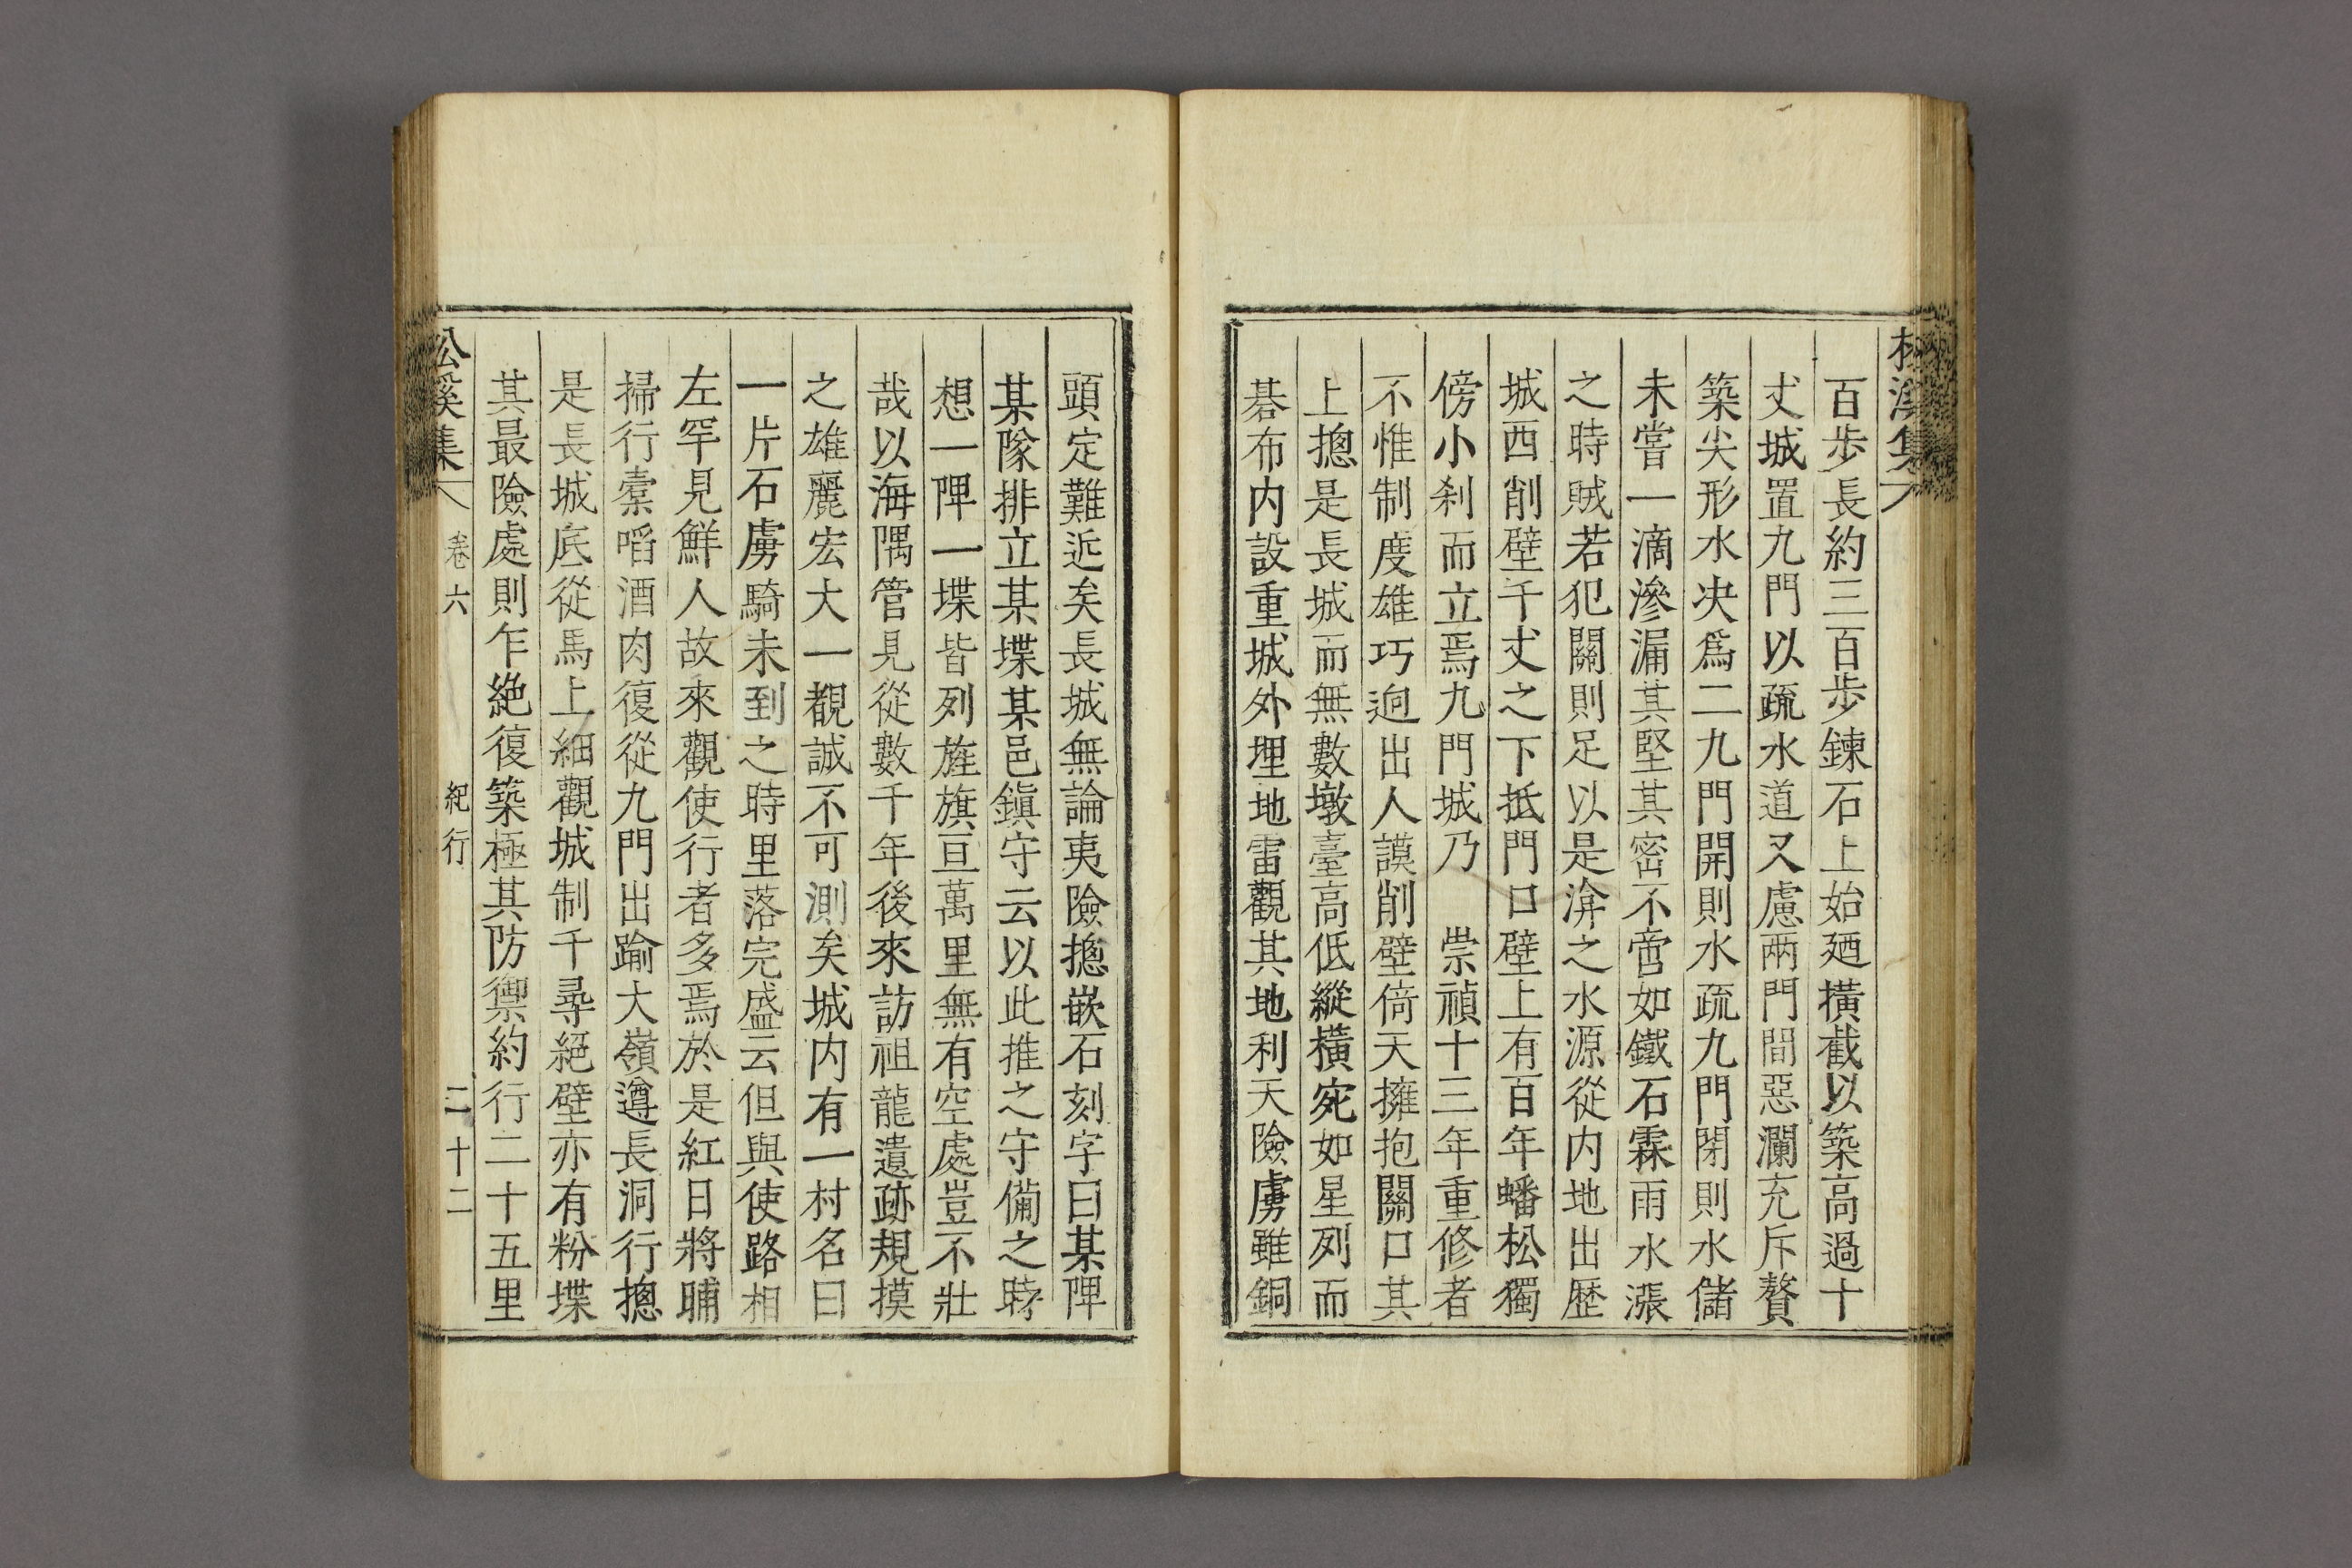 松溪集
百歩長約三百歩鍊石上始廼橫截以築高過十
丈城置九門以疏水道又慮兩門間惡瀾充斥贅
築尖形水决爲二九門開則水疏九門閉則水儲
未嘗一滴滲漏其堅其密不啻如鐵石霖雨水漲
之時賊若犯關則足以是渰之水源從内地出歴
城西削壁千丈之下抵門口壁上有百年蟠松獨
傍小刹而立焉九門城乃　崇禎十三年重修者
不惟制度雄巧逈出人謨削壁倚天擁抱關口其
上摠是長城而無數墩臺高低縱橫宛如星列而
碁布内設重城外埋地雷觀其地利天險虜雖銅
頭定難近矣長城無論夷險摠嵌石刻字曰某陴
某隊排立某堞某邑鎭守云以此推之守備之時
想一陴一堞皆列旌旗亘萬里無有空處豈不壯
哉以海隅管見從數千年後來訪祖龍遺跡規摸
之雄麗宏大一覩誠不可測矣城内有一村名曰
一片石虜騎未到之時里落完盛云但與使路相
左罕見鮮人故來觀使行者多焉於是紅日將晡
掃行槖啗酒肉復從九門出踰大嶺遵長洞行摠
是長城底從馬上細觀城制千尋絕壁亦有粉堞
其最險處則乍絶復築極其防禦約行二十五里
松溪集 卷六 紀行 二十二